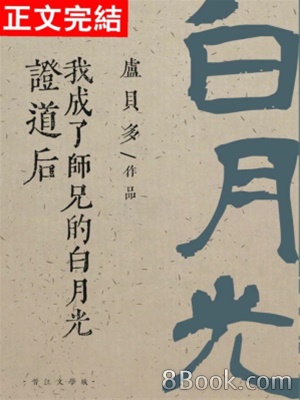 正文完結
白月光
盧貝多/作品
我成了師兄的白月光
證道后
·晋江文學城·
8Book.com